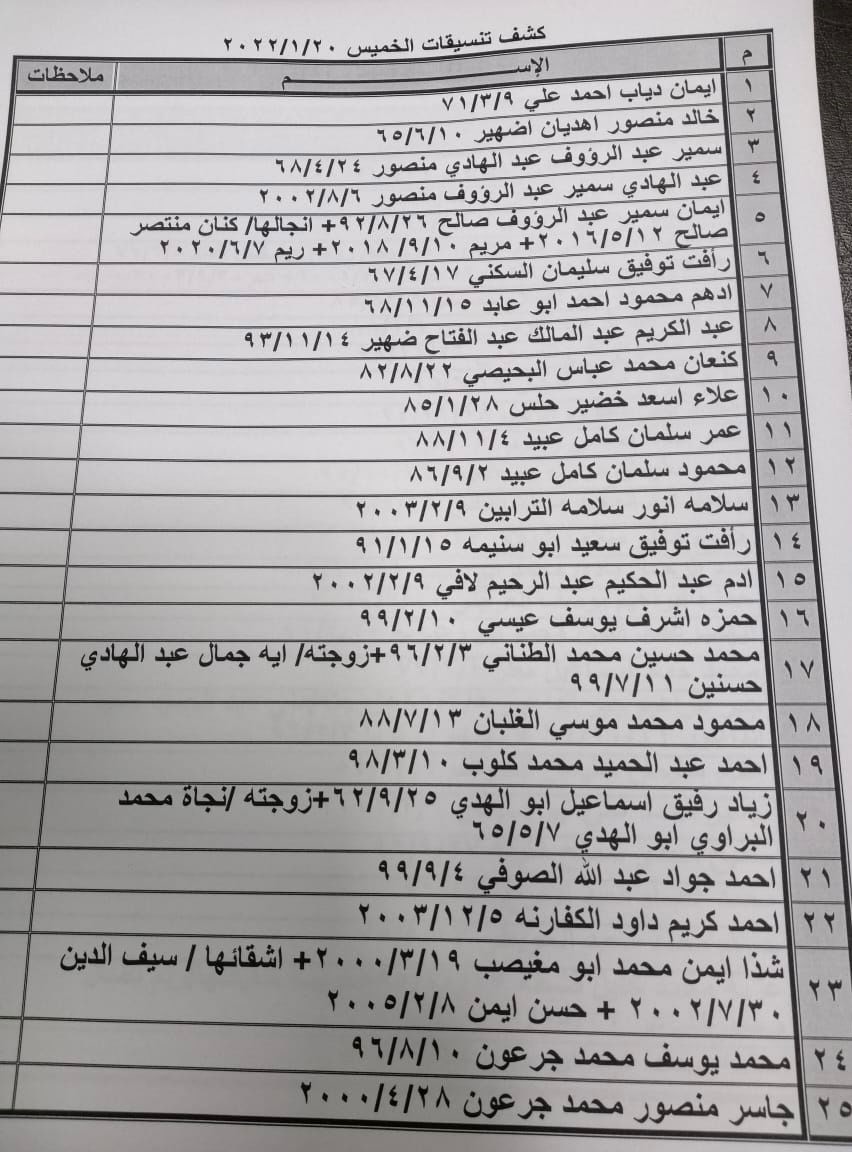 كشف تنسيقات الخميس ٢٠٢٢/١/٢٠
م الإســـــــــــــــم ملاحظات
١ ايمان دياب احمد علي ٧١/٣/٩
٢ خالد منصور اهديان اضهير ٦٥/٦/١٠
٣ سمير عبد الرؤوف عبد الهادي منصور ٦٨/٤/٢٤
٤ عبد الهادي سمير عبد الرؤوف منصور ٢٠٠٢/٨/٦
٥ ايمان سمير عبد الرؤوف صالح ٩٢/٨/٢٦+ انجالها/ كنان منتصر
صالح ٢٠١٦/٥/١٢+ مريم ٢٠١٨ /٩/١٠+ ريم ٢٠٢٠/٦/٧
٦ رأفت توفيق سليمان السكني ٦٧/٤/١٧
٧ ادهم محمود احمد ابو عابد ٦٨/١١/١٥
٨ عبد الكريم عبد المالك عبد الفتاح ضهير ٩٣/١١/١٤
٩ كنعان محمد عباس البحيصي ٨٢/٨/٢٢
١٠ علاء اسعد خضير حلس ٨٥/١/٢٨
١١ عمر سلمان كامل عبيد ٨٨/١١/٤
١٢ محمود سلمان كامل عبيد ٨٦/٩/٢
١٣ سلامه انور سلامه الترابين ٢٠٠٣/٢/٩
١٤ رأفت توفيق سعيد ابو سنيمه ٩١/١/١٥
١٥ ادم عبد الحكيم عبد الرحيم لافي ٢٠٠٢/٢/٩
١٦ حمزه اشرف يوسف عيسي ٩٩/٢/١٠
١٧ محمد حسين محمد الطناني ٩٦/٢/٣+زوجته/ ايه جمال عبد الهادي
حسنين ٩٩/٧/١١
١٨ محمود محمد موسي الغلبان ٨٨/٧/١٣
١٩ احمد عبد الحميد محمد كلوب ٩٨/٣/١٠
٢٠ زياد رفيق اسماعيل ابو الهدي ٦٢/٩/٢٥+زوجته /نجاة محمد
البراوي ابو الهدي ٦٥/٥/٧
٢١ احمد جواد عبد الله الصوفي ٩٩/٩/٤
٢٢ احمد كريم داود الكفارنه ٢٠٠٣/١٢/٥
٢٣ شذا ايمن محمد ابو مغيصب ٢٠٠٠/٣/١٩+ اشقائها / سيف الدين
٢٠٠٢/٧/٣٠ + حسن ايمن ٢٠٠٥/٢/٨
٢٤ محمد يوسف محمد جرعون ٩٦/٨/١٠
٢٥ جاسر منصور محمد جرعون ٢٠٠٠/٤/٢٨